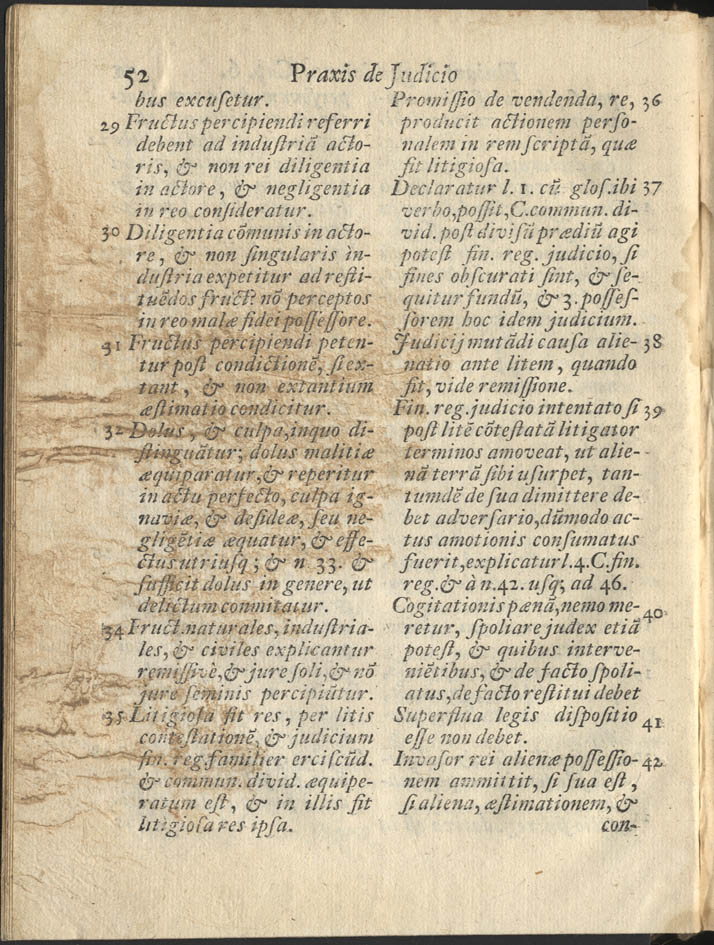 52 Praxis de Judicio
bus excuſetur.
29 Fructus percipiendi referri
debent ad induſtriā acto-
ris, & non rei diligentia
in actore, & negligentia
in reo conſideratur.
30 Diligentia cōmunis in acto-
re, & non ſingularis in-
duſtria expetitur ad reſti-
tuēdos fruct. nō perceptos
in reo malæ fidei poſſeſſore.
31 Fructus percipiendi peten-
tur poſt condictionē, ſi ex-
tant, & non extantium
æſtimatio condicitur.
32 Dolus, & culpa, in quo di-
ſtinguātur; dolus malitiæ
æquiparatur, & reperitur
in actu perfecto, culpa ig-
naviæ, & deſideæ, ſeu ne-
gligētiæ æquatur, & effe-
ctus utriuſq; & n 33. &
ſufficit dolus in genere, ut
delictum conmitatur.
34 Fruct. naturales, induſtria-
les, & civiles explicantur
remiſſivè, & jure ſoli, & nō
jure ſeminis percipiūtur.
35 Litigioſa fit res, per litis
conteſtationē, & judicium
fin. reg. familier erciſcūd.
& commun. divid. æquipe-
ratum eſt, & in illis fit
litigioſa res ipſa.
Promiſſio de vendenda, re, 36
producit actionem perſo-
nalem in rem ſcriptā, quæ
fit litigioſa.
Declaratur l. 1. cū gloſ. ibi 37
verbo, poſſit, C. commun. di-
vid. poſt diviſū prædiū agi
poteſt fin. reg. judicio, ſi
fines obſcurati ſint, & ſe-
quitur fundū, & 3. poſſeſ-
ſorem hoc idem judicium.
Judicij mutādi cauſa alie- 38
natio ante litem, quando
fit, vide remiſſione.
Fin. reg. judicio intentato ſi 39
poſt litē cōteſtatā litigator
terminos amoveat, ut alie-
nā terrā ſibi uſurpet, tan-
tumdē de ſua dimittere de-
bet adverſario, dūmodo ac-
tus amotionis conſumatus
fuerit, explicatur l. 4. C. fin.
reg. & à n. 42. uſq; ad 46.
Cogitationis pænā, nemo me- 40
retur, ſpoliare judex etiā
poteſt, & quibus interve-
niētibus, & de facto ſpoli-
atus, de facto reſtitui debet
Superflua legis diſpoſitio 41
eſſe non debet.
Invaſor rei alienæ poſſeſſio- 42
nem ammittit, ſi ſua eſt,
ſi aliena, æſtimationem, &
con-